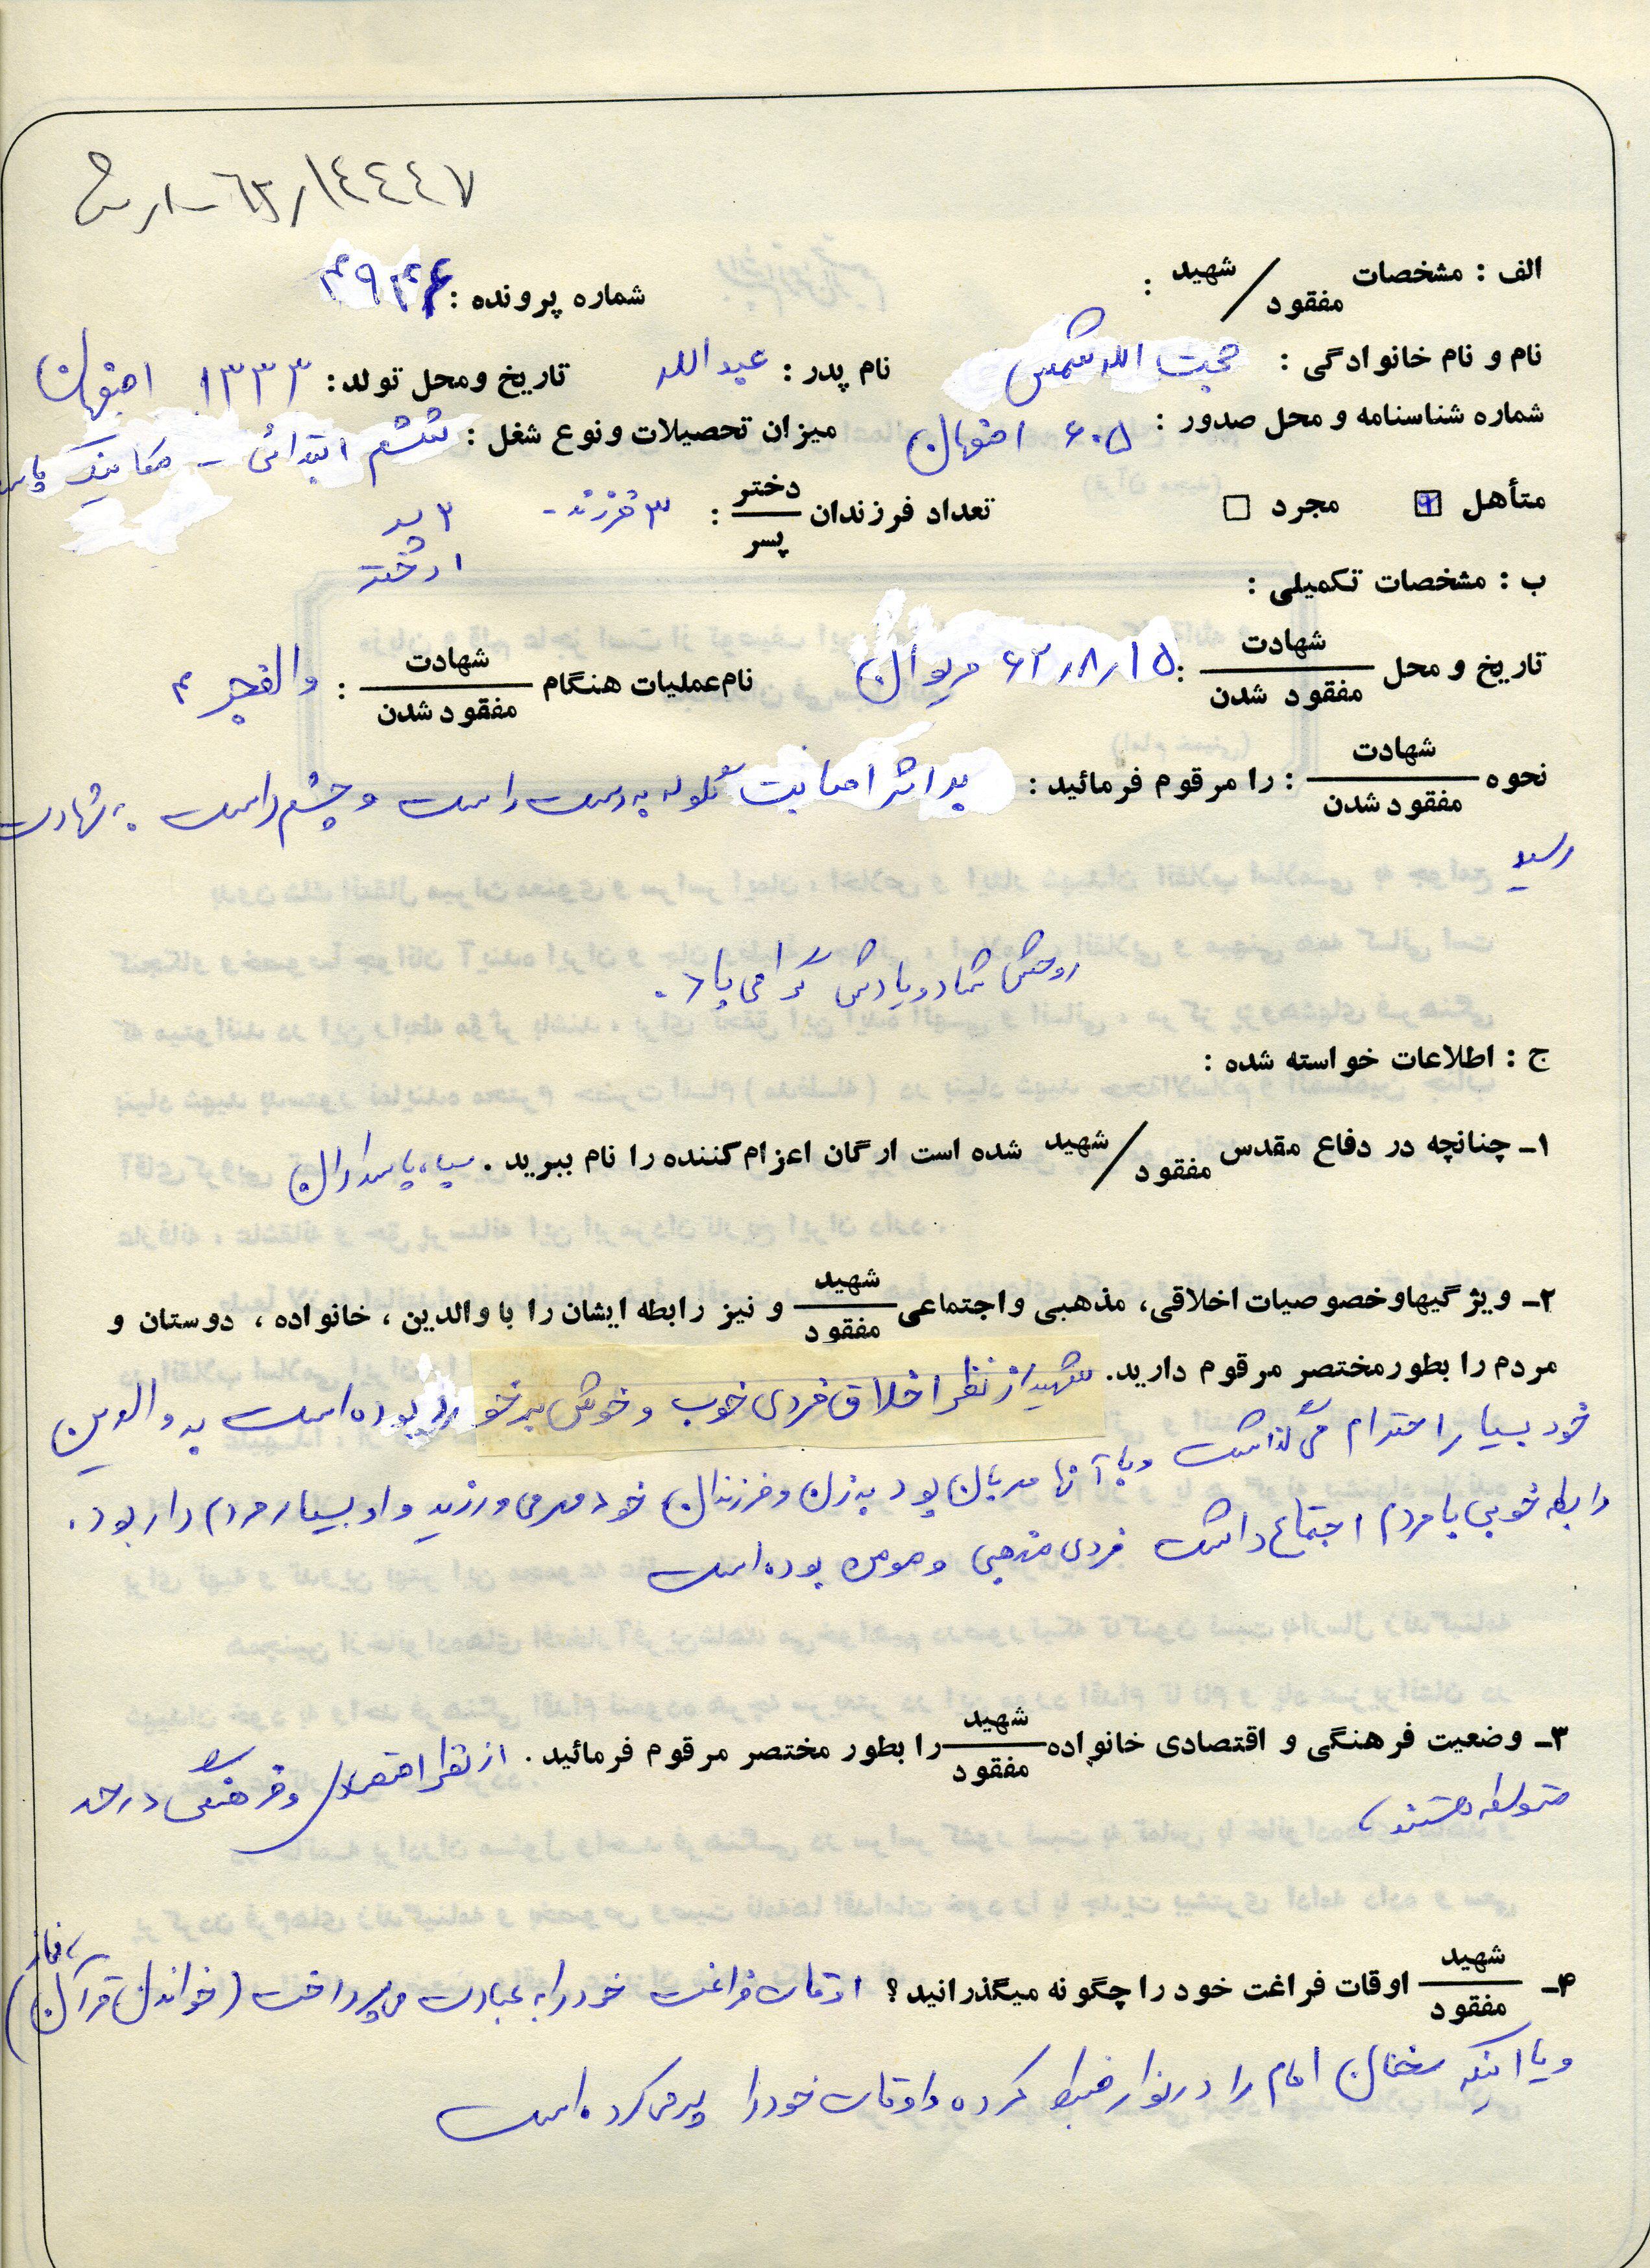 ۶۲/۱٤٤٤۷
الف : مشخصات شهید / مفقود :
شماره پرونده :
نام و نام خانوادگی : حجت الله شمس نام پدر : عبدالله تاریخ ومحل تولد : ۱۳۳۳ اصفهان
شماره شناسنامه و محل صدور : ۶۰۵ اصفهان میزان تحصیلات ونوع شغل : ششم ابتدائی - مکانیک
متأهل مجرد تعداد فرزندان دختر / پسر : ۳ فرزند - ۲ پسر
۱ دختر
ب : مشخصات تکمیلی :
تاریخ و محل شهادت / مفقود شدن : ۶۲/۸/۱۵ مریوان نام عملیات هنگام شهادت / مفقود شدن : والفجر ۴
نحوه شهادت / مفقود شدن : را مرقوم فرمائید : بر اثر اصابت گلوله به دست راست و چشم راست به شهادت
رسید
روحش شاد و یادش گرامی باد .
ج : اطلاعات خواسته شده :
۱- چنانچه در دفاع مقدس شهید / مفقود شده است ارگان اعزام کننده را نام ببرید . سپاه پاسداران
۲- ویژگیهاوخصوصیات اخلاقی، مذهبی واجتماعی شهید / مفقود و نیز رابطه ایشان را با والدین ، خانواده ، دوستان و
مردم را بطور مختصر مرقوم دارید. شهید از نظر اخلاق فردی خوب و خوش برخورد بوده است به والدین
خود بسیار احترام می گذاشت و با آنها مهربان بود به زن و فرزندان خود مهر می ورزید و او بسیار مردم دار بود .
رابطه خوبی با مردم اجتماع داشت فردی مذهبی و مومن بوده است
۳- وضعیت فرهنگی و اقتصادی خانواده شهید / مفقود را بطور مختصر مرقوم فرمائید . از نظر اقتصادی و فرهنگی در حد
متوسط هستند
۴- شهید / مفقود اوقات فراغت خود را چگونه میگذرانید ؟ اوقات فراغت خود را به عبادت می پرداخت (خواندن قرآن ، نماز)
و یا اینکه سخنان امام را در نوار ضبط کرده و اوقات خود را پر می کرده است